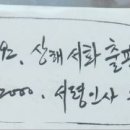 92. 상해서화출판
2000. 서령인사